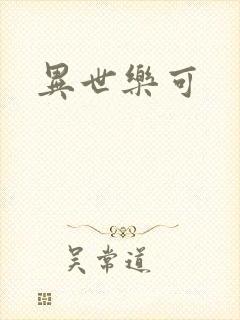 異世樂可
吳常道